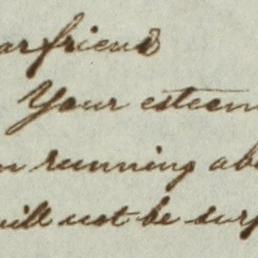 ar friend
Your esteem
n running abo
will not be surp